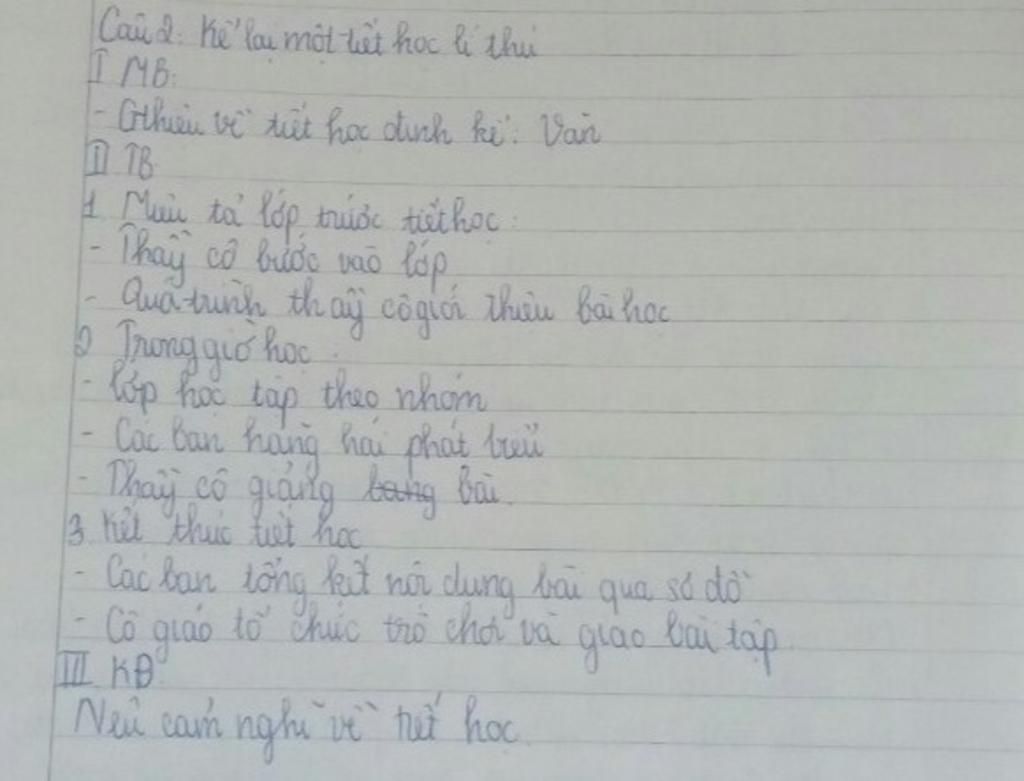 Câu 2: Kể lại một tiết học lí thú
I MB:
- Gthiệu về tiết học định kể: Văn
II TB
1 Miêu tả lớp trước tiết học:
- Thầy cô bước vào lớp
- Quá trình thầy cô giới thiệu bài học
2 Trong giờ học.
- lớp học tập theo nhóm
- Các bạn hăng hái phát biểu
- Thầy cô giảng bài.
3 Kết thúc tiết học
- Các bạn tổng kết nội dung bài qua sơ đồ
- Cô giáo tổ chức trò chơi và giao bài tập
III KĐ
Nêu cảm nghĩ về tiết học.